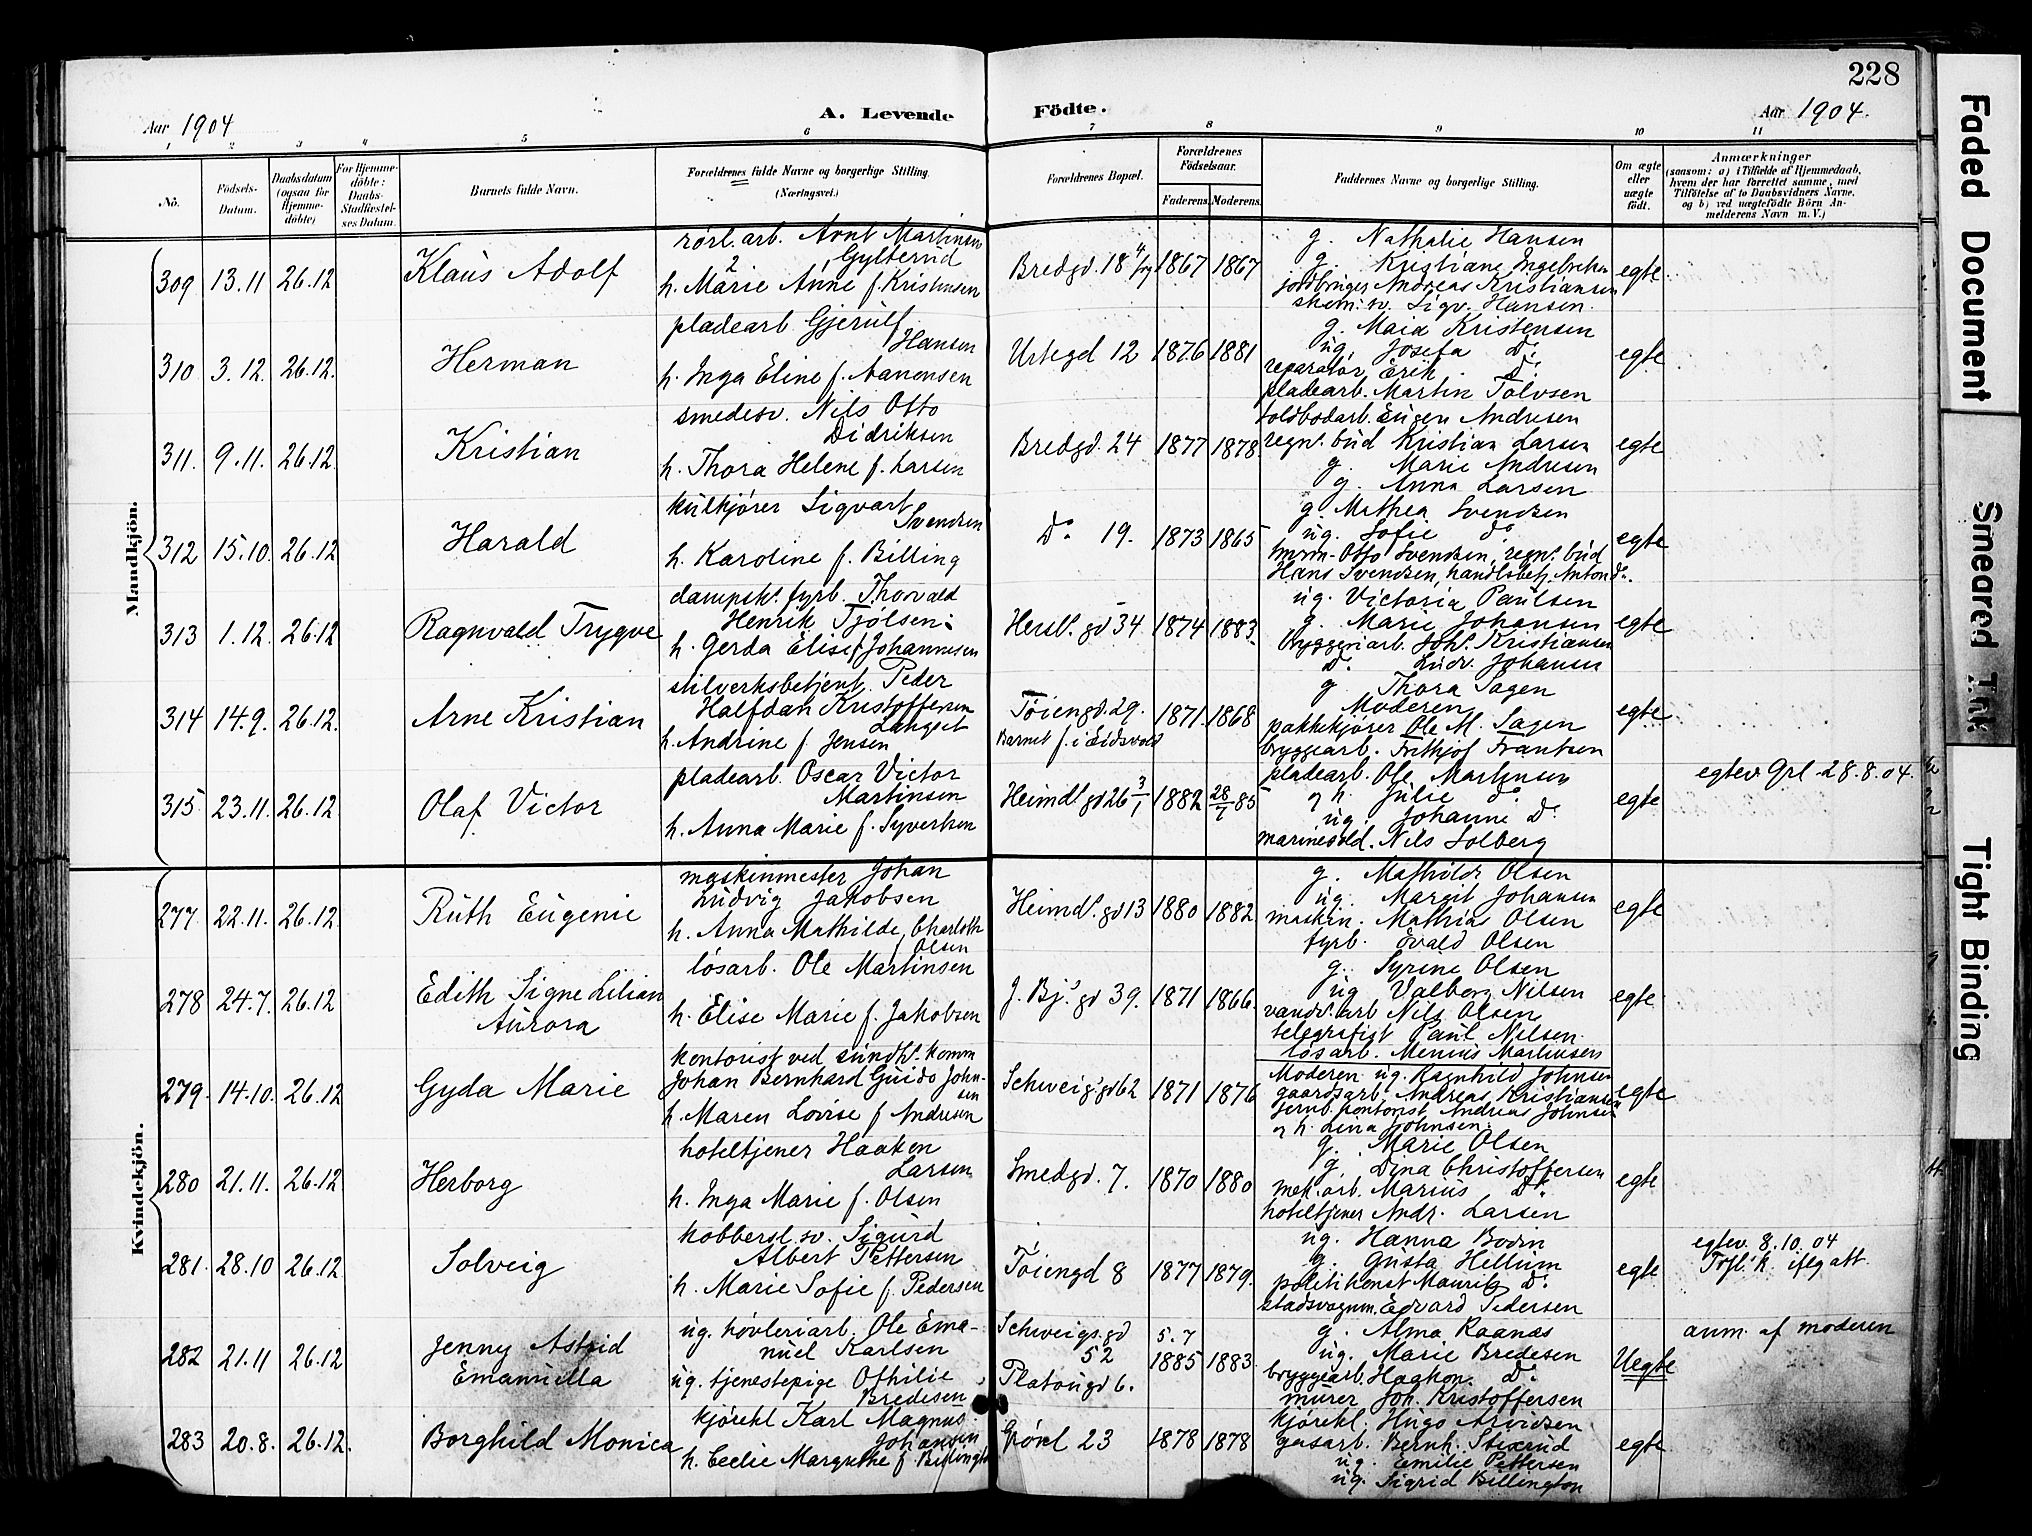 228
Aar 1904
A. Levende
Födte.
Aar 1904.
1 2 3 4 5 6 7 8 9 10 11
No.
Födsels-
Datum.
Daabsdatum
(ogsaa for
Hjemme-
döbte)
For Hjemme-
döbte:
Daabs-
Stadfæstel-
ses Datum.
Barnets fulde Navn.
Forældrenes fulde Navne og borgerlige Stilling.
(Næringsvei.)
Forældrenes Bopæl.
Forældrenes
Födselsaar.
Faderens. Moderens.
Faddernes Navne og borgerlige Stilling.
Om ægte
eller
uægte
födt.
Anmærkninger
(saasom: a) i Tilfælde af Hjemmedaab,
hvem der har forrettet samme, med
Tilföielse af to Daabsvidners Navne,
og b) ved uægtefödte Börn An-
melderens Navn m. V.)
Mandkjön.
309 13.11 26.12 Klaus Adolf
rörl. arb. Arnt Martinsen
Gylterud
h. Marie Anne f. Kristensen
Bredgd. 18 1867 1867
g. Nathalie Hansen
g. Kristiane Ingebretsen
jordbruger Andreas Kristiansen
skom. sv. Sigv. Hansen.
egte
310 3.12. 26.12. Herman
pladearb Gjerulf
Hansen
h. Inga Eline f. Aanensen
Urtegd 12 1876 1881
g. Maia Kristensen
ug. Josefa Do.
reparatör Erik Do.
pladearb. Martin Tolvsen
egte
311. 9.11. 26.12. Kristian
smedesv. Nils Otto
Didriksen
h. Thora Helene f. Larsen
Bredgd. 24 1877 1878.
toldbodarb. Eugen Andresen
regnt. bud Kristian Larsen
g. Marie Andresen
g. Anna Larsen
egte
312 15.10. 26.12 Harald
kulkjörer Sigvart
Svendsen
h. Karoline f. Billing
Do. 19. 1873 1865
g. Mathea Svendsen
ug. Sofie Do
Otto Svendsen, regnt. bud
Hans Svendsen, handlsbetj. Anton Do.
egte
313 1.12. 26.12 Ragnvald Trygve
dampsk. fyrb. Thorvald
Henrik Tjölsen
h. Gerda Elise f. Johannesen
Hersl. gd 34 1874 1883.
ug. Victoria Paulsen
g. Marie Johansen
bryggeriarb. Joh. Kristiansen
Do. Ludv. Johansen
egte
314 14.9. 26.12. Arne Kristian
stilverksbetjent Peder
Halfdan Kristoffersen
Langset
h. Andrine f. Jensen
Töiengd. 29.
Barnet f. i Eidsvold
1871 1868
g. Thora Sagen
Moderen
pakkekjörer Ole M. Sagen
bryggearb. Frithjof Frantsen
egte
315 23.11. 26.12. Olaf Victor
pladearb. Oscar Victor
Martinsen
h. Anna Marie f. Syvertsen
Heimdl. gd 26 3/1 1882 28/7 85
pladearb. Ole Martinsen
og h. Julie do.
ug. Johanne Do
marinesold. Nils Solberg
egte
egtev Grl 28.8.04.
Kvindekjön.
277. 22.11. 26.12. Ruth Eugenie
maskinmester Johan
Ludvig Jakobsen
h. Anna Mathilde Charloth
f Olsen
Heimdl. gd 13 1880 1882.
g. Mathilde Olsen
ug. Margit Johansen
maskin. Mathias Olsen
fyrb. Ovald Olsen
egte
278 24.7. 26.12. Edith Signe Lilian
Aurora
lösarb. Ole Martinsen
h. Elise Marie f. Jakobsen
J. Bj. gd 39. 1871 1866.
g. Syrine Olsen
ug Valborg Nilsen
vandv. arb Nils Olsen
telegrafist Paul Nilsen
lösarb. Menius Martinsen
egte
279. 14.10. 26.12 Gyda Marie
kontorist ved sundh. komm
Johan Bernhard Guido John-
sen
h. Maren Lovise f Andresen
Schweig. gd 62 1871 1876
Moderen ug. Ragnhild Johnsen
gaardsarb. Andreas Kristiansen
jernb. kontorist Andreas Johnsen
og h. Lina Johnsen.
egte
280 21.11. 26.12 Herborg
hoteltjener Haaken
Larsen
h. Inga Marie f. Olsen
Smedgd. 7. 1870 1880
g. Marie Olsen
g. Dina Christoffersen
mek. arb. Marius Do.
hoteltjener Andr. Larsen
egte
281. 28.10 26.12 Solveig
kobbersl. sv. Sigurd
Albert Pettersen
h. Marie Sofie f. Pedersen
Töiengd 8 1877 1879.
ug. Hanna Bodin
g. Gusta Hellum
politikonst Mauritz Do.
stadsvognm. Edvard Pedersen
egte
egtev. 8.10.04
Trfl. k. iflg att.
282 21.11 26.12 Jenny Astrid
Emanuella
ug. hövleriarb. Ole Ema-
nuel Karlsen
ug. tjenestepige Othilie
Bredesen
Schweigs. gd
52
Platougd 6.
5.7
1885 1883.
g. Alma Raanæs
ug. Marie Bredesen
bryggearb. Haakon Do.
murer Joh. Kristoffersen
Uegte
anm. af moderen
283 20.8. 26.12. Borghild Monica
kjörekl Karl Magnus
Johansen
h. Cecilie Margrethe f. Billington
Grönl 23 1878 1878
kjörekl. Hugo Arvidsen
gasarb. Bernh. Stixrud
ug. Emilie Pettersen
ug. Sigrid Billington
egte
Faded Document
Smeared Ink
Tight Binding